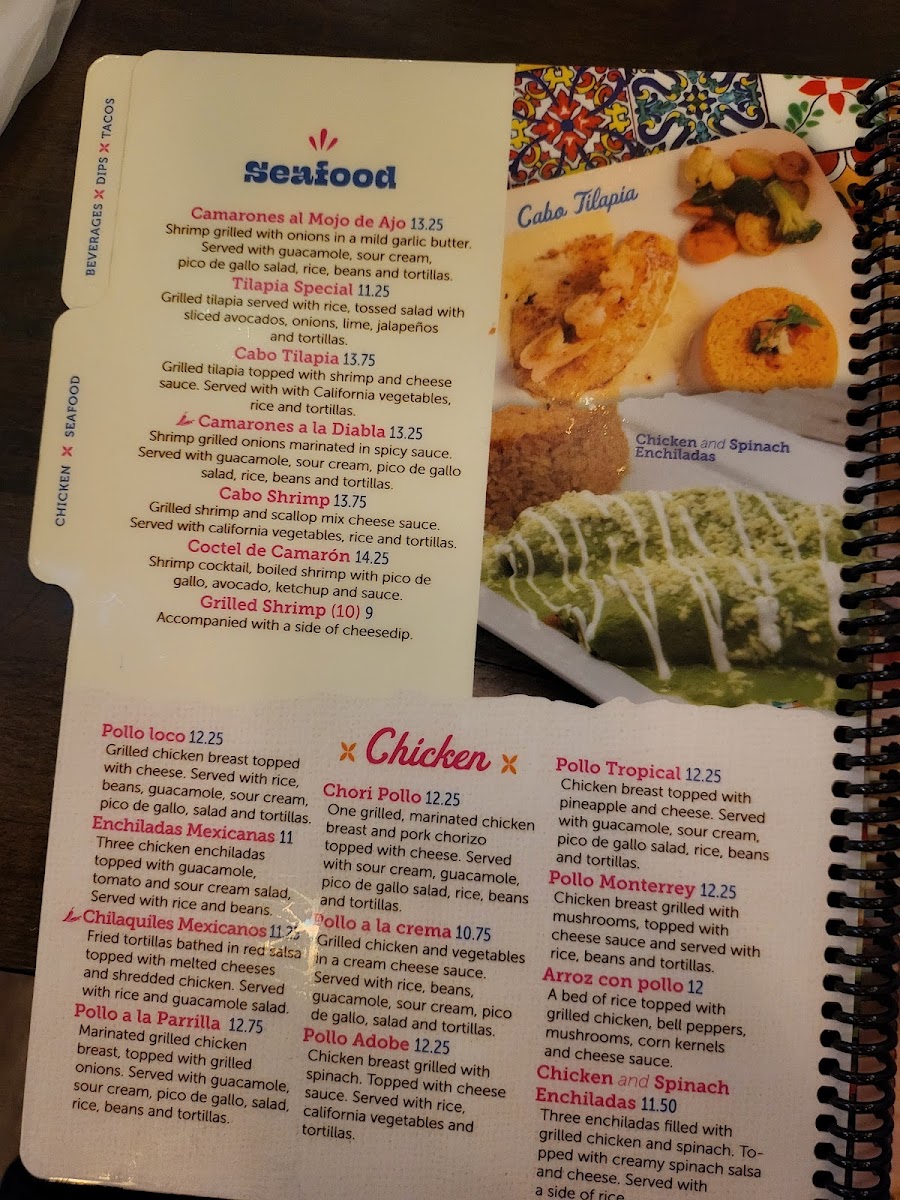 BEVERAGES x DIPS x TACOS
CHICKEN x SEAFOOD
Seafood
Camarones al Mojo de Ajo 13.25
Shrimp grilled with onions in a mild garlic butter.
Served with guacamole, sour cream,
pico de gallo salad, rice, beans and tortillas.
Tilapia Special 11.25
Grilled tilapia served with rice, tossed salad with
sliced avocados, onions, lime, jalapeños
and tortillas.
Cabo Tilapia 13.75
Grilled tilapia topped with shrimp and cheese
sauce. Served with with California vegetables,
rice and tortillas.
Camarones a la Diabla 13.25
Shrimp grilled onions marinated in spicy sauce.
Served with guacamole, sour cream, pico de gallo
salad, rice, beans and tortillas.
Cabo Shrimp 13.75
Grilled shrimp and scallop mix cheese sauce.
Served with california vegetables, rice and tortillas.
Coctel de Camarón 14.25
Shrimp cocktail, boiled shrimp with pico de
gallo, avocado, ketchup and sauce.
Grilled Shrimp (10) 9
Accompanied with a side of cheesedip.
Cabo Tilapia
Chicken and Spinach
Enchiladas
Chicken
Pollo loco 12.25
Grilled chicken breast topped
with cheese. Served with rice,
beans, guacamole, sour cream,
pico de gallo, salad and tortillas.
Enchiladas Mexicanas 11
Three chicken enchiladas
topped with guacamole,
tomato and sour cream salad,
Served with rice and beans.
Chilaquiles Mexicanos 11.25
Fried tortillas bathed in red salsa
topped with melted cheeses
and shredded chicken. Served
with rice and guacamole salad.
Pollo a la Parrilla 12.75
Marinated grilled chicken
breast, topped with grilled
onions. Served with guacamole,
sour cream, pico de gallo, salad,
rice, beans and tortillas.
Chori Pollo 12.25
One grilled, marinated chicken
breast and pork chorizo
topped with cheese. Served
with sour cream, guacamole,
pico de gallo salad, rice, beans
and tortillas.
Pollo a la crema 10.75
Grilled chicken and vegetables
in a cream cheese sauce.
Served with rice, beans,
guacamole, sour cream, pico
de gallo, salad and tortillas.
Pollo Adobe 12.25
Chicken breast grilled with
spinach. Topped with cheese
sauce. Served with rice,
california vegetables and
tortillas.
Pollo Tropical 12.25
Chicken breast topped with
pineapple and cheese. Served
with guacamole, sour cream,
pico de gallo salad, rice, beans
and tortillas.
Pollo Monterrey 12.25
Chicken breast grilled with
mushrooms, topped with
cheese sauce and served with
rice, beans and tortillas.
Arroz con pollo 12
A bed of rice topped with
grilled chicken, bell peppers,
mushrooms, corn kernels
and cheese sauce.
Chicken and Spinach
Enchiladas 11.50
Three enchiladas filled with
grilled chicken and spinach. To-
pped with creamy spinach salsa
and cheese. Served with
a side of rice